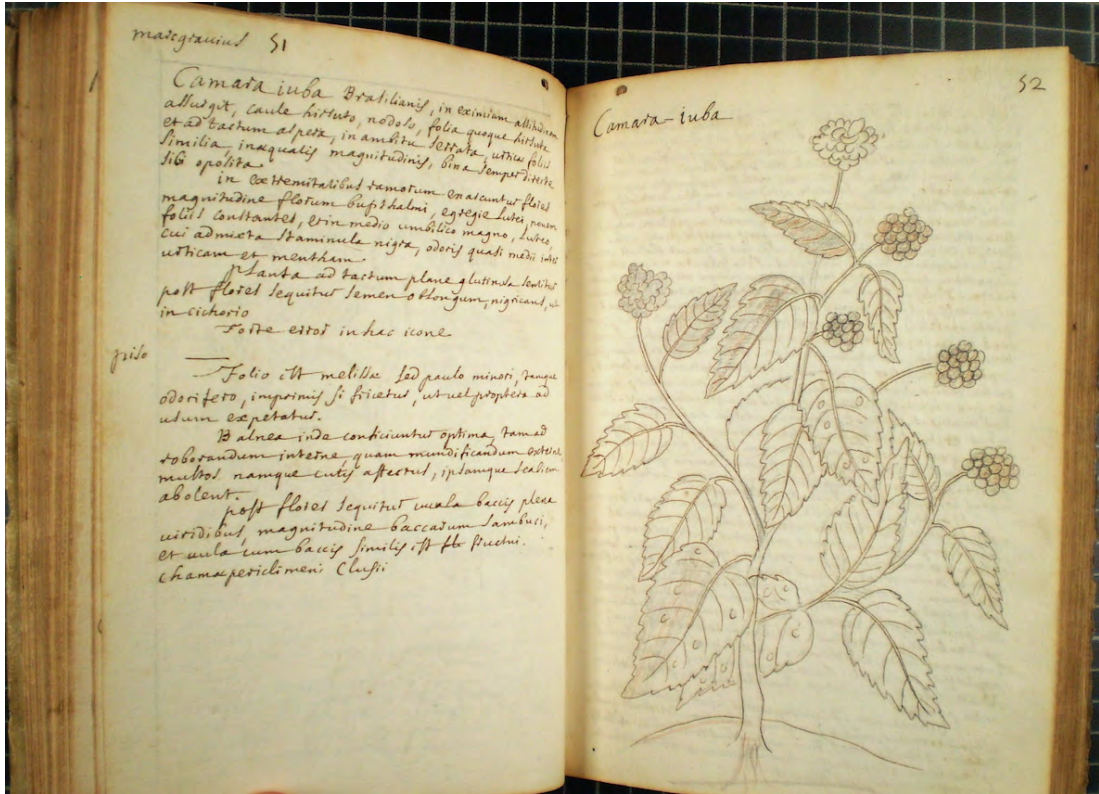 marcgrauius 51
Camara iuba Brasilianis, in eximium altitudinem
assurgit, caule hirsuto, nodoso, folia quoque hirsuta
et ad tactum aspera, in ambitu serrata, urticae foliis
similia, inaequalis magnitudinis, bina semper directe
sibi oposita.
in extremitatibus ramorum enascuntur flores
magnitudine florum bupthalmi, egregie lutei, novem
foliis constantes, et in medio umbilico magno, luteo,
cui admixta staminula nigra, odoris quasi medii inter
urticam et mentham.
Planta ad tactum plane glutinosa sentitur
post flores sequitur semen oblongum, nigricans, ut
in cichorio
Forte error in hac icone
piso
Folio est melissae sed paulo minori, tamque
odorifero, imprimis si fricetur, ut vel propterea ad
usum expetatur.
Balnea inde conficiuntur optima, tam ad
roborandum interne, quam mundificandum externe
multos namque cutis affectus, ipsamque scabiem
abolent.
post flores sequitur uvula baccis plena
viridibus, magnitudine baccarum sambuci,
et uvula cum baccis similis est fructui
chamaepericlimeni Clusii
52
Camara-iuba